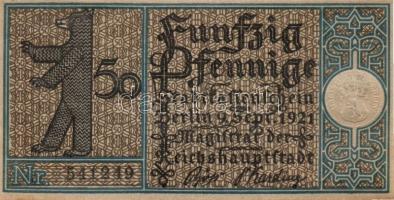 Funfzig
Pfennige
50
Berlin 9. Sept. 1921
Magistrat der
Reichshauptstadt
Nr. 541249